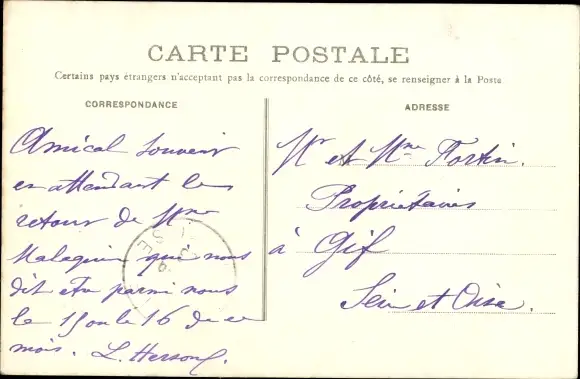 CARTE POSTALE
Certains pays étrangers n'acceptant pas la correspondance de ce côté, se renseigner à la Poste
CORRESPONDANCE
Amical souvenir
en attendant le
retour de Mme
Malaquin qui nous
dit être parmi nous
le 15 ou le 16 de ce
mois. L.
ADRESSE
Mr et Mme Fortin.
Propriétaires
à Gif
Seine et Oise.